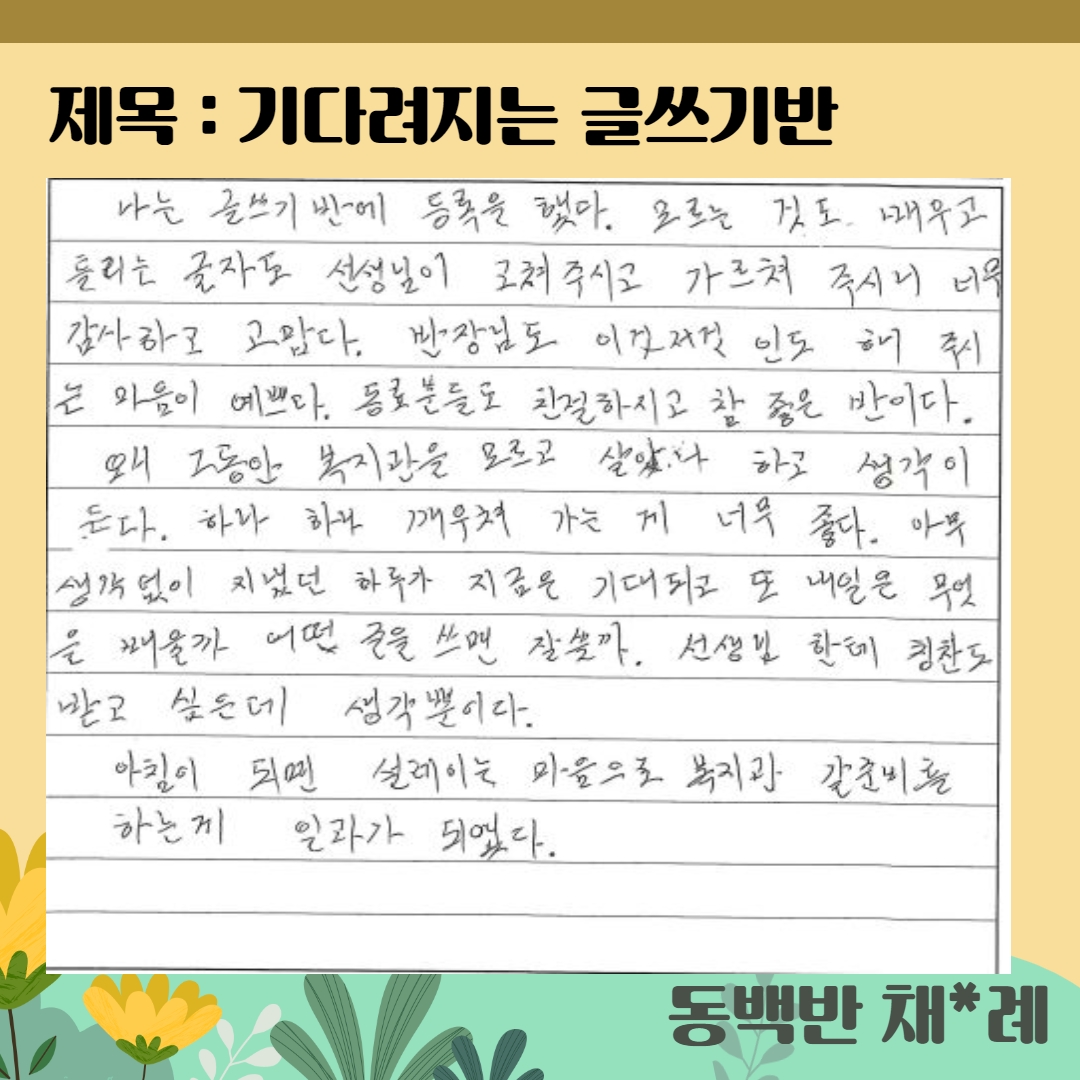 제목 : 기다려지는 글쓰기반
나는 글쓰기 반에 등록을 했다. 모르는 것도 배우고
틀리는 글자도 선생님이 고쳐주시고 가르쳐 주시니 너무
감사하고 고맙다. 반장님도 이것저것 인도 해 주시
는 마음이 예쁘다. 동료분들도 친절하시고 참 좋은 반이다.
왜 그동안 복지관을 모르고 살았나 하고 생각이
든다. 하나 하나 깨우쳐 가는 게 너무 좋다. 아무
생각없이 지냈던 하루가 지금은 기대되고 또 내일은 무엇
을 배울까 어떤 글을 쓰면 잘쓸까. 선생님 한테 칭찬도
받고 싶은데 생각뿐이다.
아침이 되면 설레이는 마음으로 복지관 갈준비를
하는게 일과가 되었다.
동백반 채*례